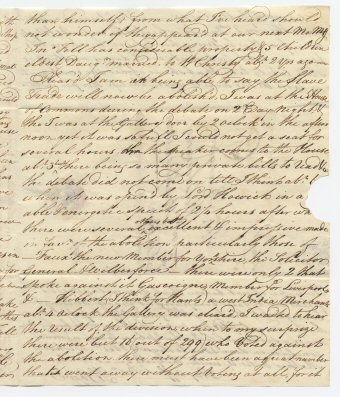 than himself from what I've heard should
not wonder if he appeared at our next Mo. Meg
Jno Fell has considerable property & 5 Chn Own
oldest Daug married to W Christy abt 2 yrs ago
Dear I am in being able to say the Slave
Trade will now be abolished, I was at the House
Commons during the debate on 2 Day Night
tho' I was at the Gallery door by 2 oclock in the after
noon yet it was so full I could not get a seat for
several hours the Speaker comes to the House
abt 3 there being so many private bills to read &c
the debate did not come on till I think abt
when it was opened by Lord Howick in a
able energetic speech of 2½ hours after wh
there were several excellent & impressive made
in favr of the abolition particularly those of
Faux the new Member for Yorkshire, the Solicitor
General & Wilberforce — there were only 2 that
spoke against it Gascoigne Member for Liverpool
& Hibbert I think for Hants a West India Merchant
abt 4 oclock the Gallery was cleard, I waited to hear
the result of the division, when to my surprize
there were but 16 out of 299 who Voted against
the abolition there must have been a great number
that went away without voting at all for it